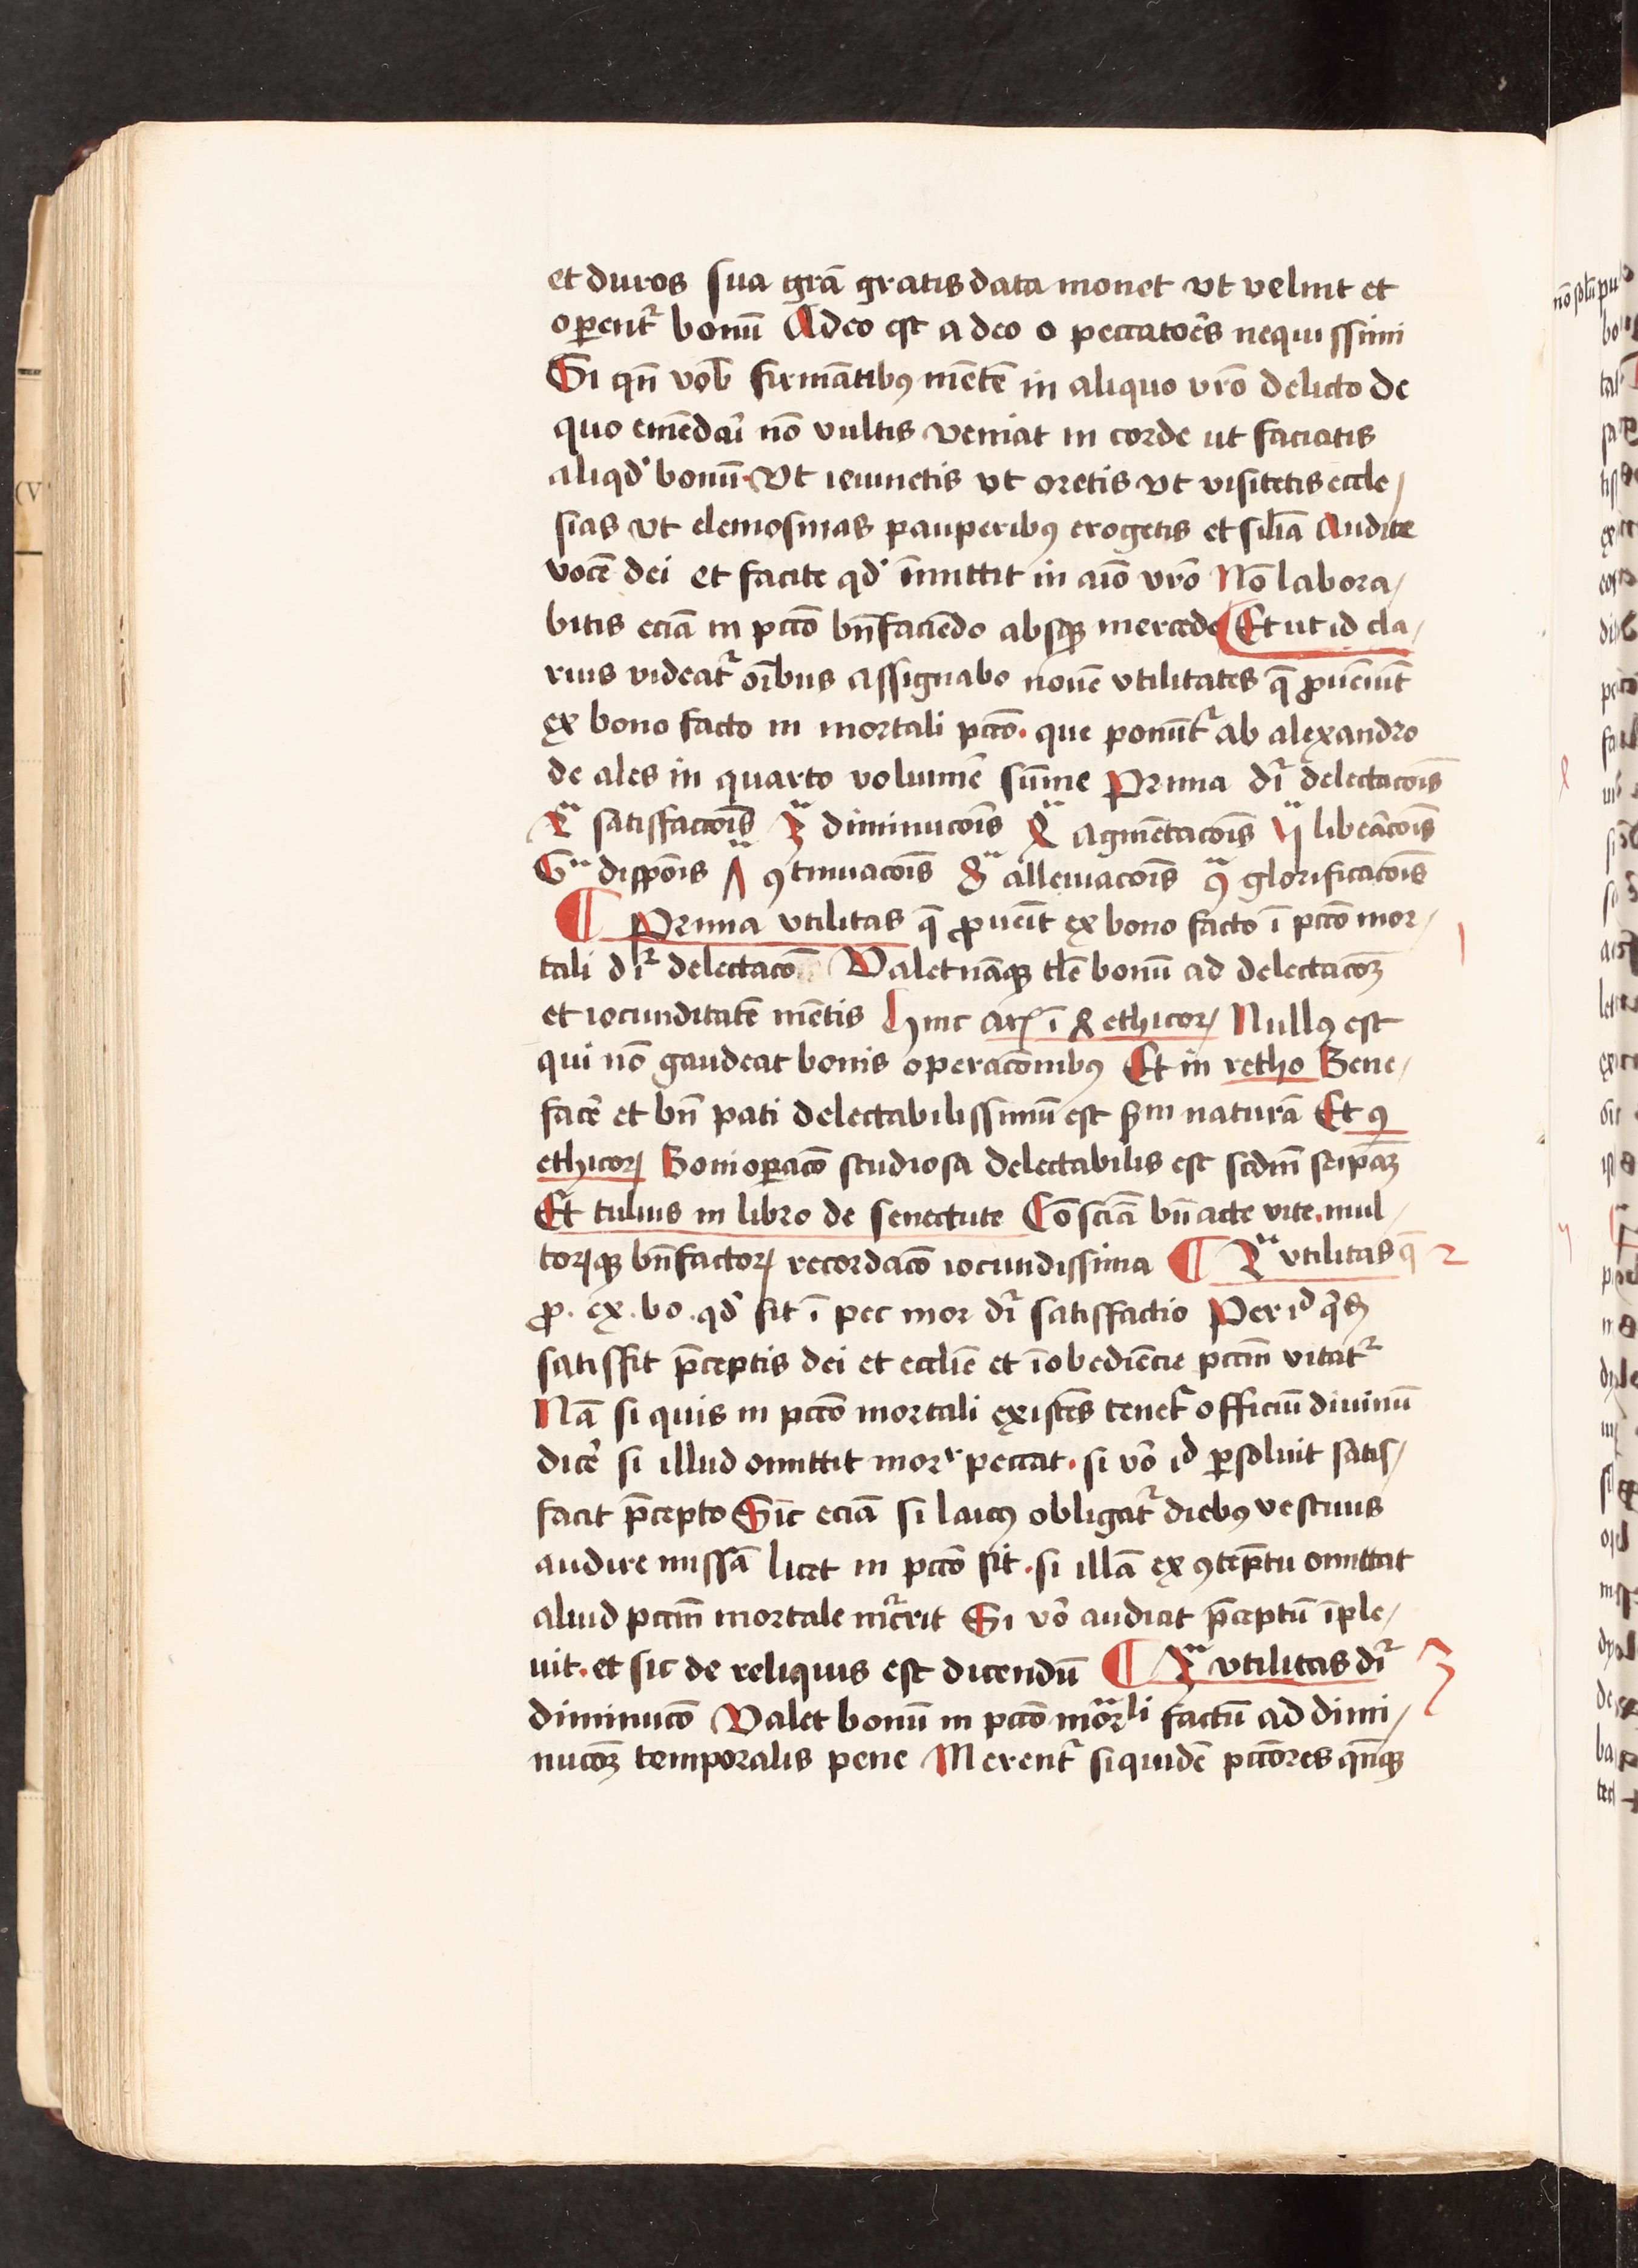 et duros sua grā gratis data monet vt velint et
operent᷑ bonū Adeo est a deo o peccatoēs nequissimi
Si qn̄ vob̄ firmātibꝯ mētē in aliquo vr̄o delicto de
quo emēdaꝛi nō vultis veniat in corde ut faciatis
aliqd᾿ bonū. Vt ieiunetis vt oretis vt visitetis eccle/
sias vt elemosinas pauperibꝯ erogetis et sil̄ia Audite
vocē dei et facite qd᾿ īmittit in aīo vr̄o Nō labora/
bitis eciā in pctō bn̄faciēdo absqꝫ mercede Et ut id cla/
rius videat᷑ oībus assignabo nouē vtilitates q̄ ꝓueīūt
ex bono facto in mortali pctō. que ponūt᷑ ab alexandro
de ales in quarto volumīe sūme Prima dꝛ̄ delectacōis
2ª satisfactōis 3ª diminucōis 4ª agmētacōis 5ª libeācōis
6ª dispōis 7ª ꝯtinuacōis 8ª alleuiacōis 9ª glorificacōis
¶ Prima vtilitas q̄ ꝓueīt ex bono facto ī pctō mor/
tali dꝛ̄ delectacō Valet nāqꝫ tl̄e bonū ad delectacōꝫ
et iocunditatē mētis Hinc ar̄ꝭ ī 8 ethicoꝝ Nullꝯ est
qui nō gaudeat bonis operacōnibꝯ Et in retho Bene/
facē et bn̄ pati delectabilissimū est ẜm naturā Et 9
ethicoꝝ Boni oꝑacō studiosa delectabilis est scd̄m seip̄aꝫ
Et tulius in libro de senectute Cōsciā bn̄ acte vite. mul/
toꝝqꝫ bn̄factoꝝ recordacō iocundissima ¶ 2ª vtilitas q̄ 2
ꝓ. ex. bo. qd᾿ fit ī pec mor dꝛ̄ satisfactio Per id
satisffit p̄ceptis dei et eccl̄ie et īobediēcie pctm̄ vitat᷑
Nā si quis in pctō mortali existēs tenet᷑ officiū diuinū
dicē si illud omittit morʳ peccat. si vō id ꝑsoluit satis/
facit p̄cepto Sic̄ eciā si laicꝯ obligat᷑ diebꝯ vestiuis
audire missā licet in pctō sit. si illā ex ꝯtēptu omittat
aliud pctm̄ mortale īcͬrit Si vō audiat p̄ceptū īple/
uit. et sic de reliquis est dicendū ¶ 3ª vtilitas dꝛ̄ 3
diminucō Valet bonū in pctō morͣli factū ad dimi/
nucōꝫ temporalis pene Merent᷑ siquidē pctōres qn̄qꝫ